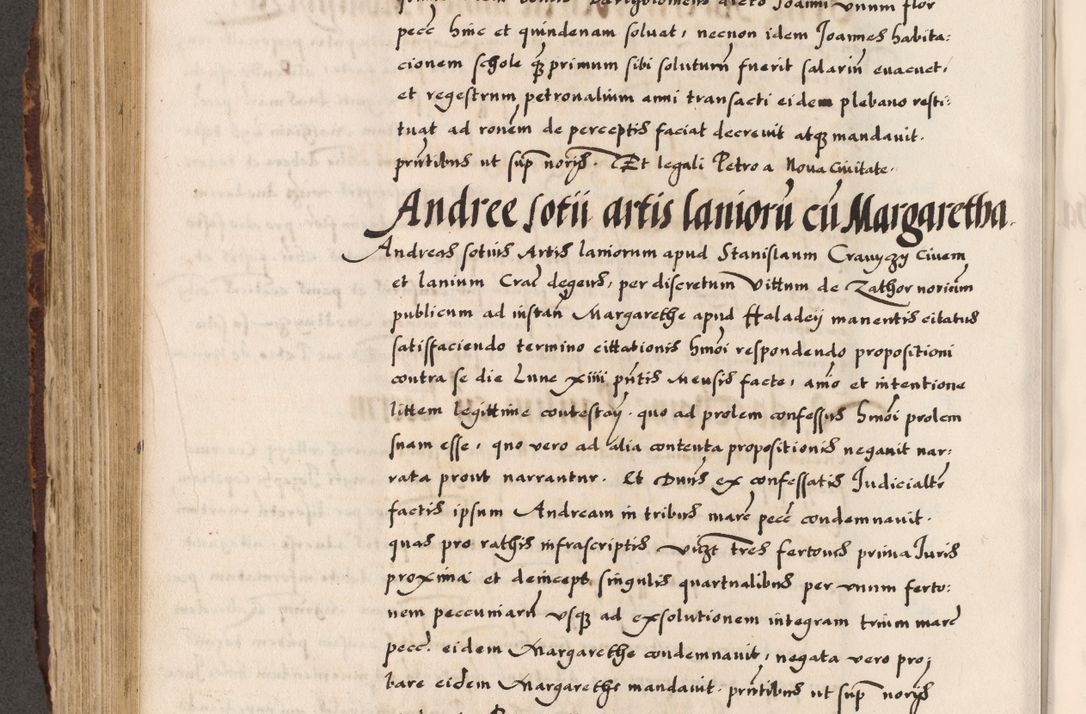 dicto Joanni unum flor
pecc̄ hinc et quindenam soluat, necnon idem Joannes habita:
cionem schole q̃ primum sibi solutum fuerit salariū evacuet,
et regestrum petronalium anni transacti eidem plebano resti:
tuat ad ronem de perceptis faciat decrevit atq mandavit.
pntibus ut sup noris. Et legali Petro a Nova Civitate.
Andree sotii artis laniorū cū Margaretha.
Andreas sotius Artis laniorum apud Stanislaum Crauyczy Civem
et lanium Crac̄ degens, per discretum Vittum de Zathor notium
publicum ad instan̄ Margarethe apud Haladeÿ manentis citatus
satisfaciendo termino cittationis hmōi respondendo propositioni
contra se die Lune xiiii pñtis Mensis facte, ānīo et intentione
littem legittime contestan̄. quo ad prolem confessus hmōi prolem
suam esse, quo vero ad alia contenta propositionis negavit nar:
rata prout narrantur. Et Dnūs ex confessatis Judicialtr
factis ipsum Andream in tribus marc̄ pecc̄ condemnavit.
quas pro rathis infrascriptis vidzt tres fertones prima Juris
proxima et deinceps singulis quartualibus per unum ferto:
nem peccuniarū usq ad exsolutionem integram trium marc̄
pecc̄. eidem Margarethe condemnavit, negata vero pro:
bare eidem Margarethe mandavit. pntibus ut sup noris